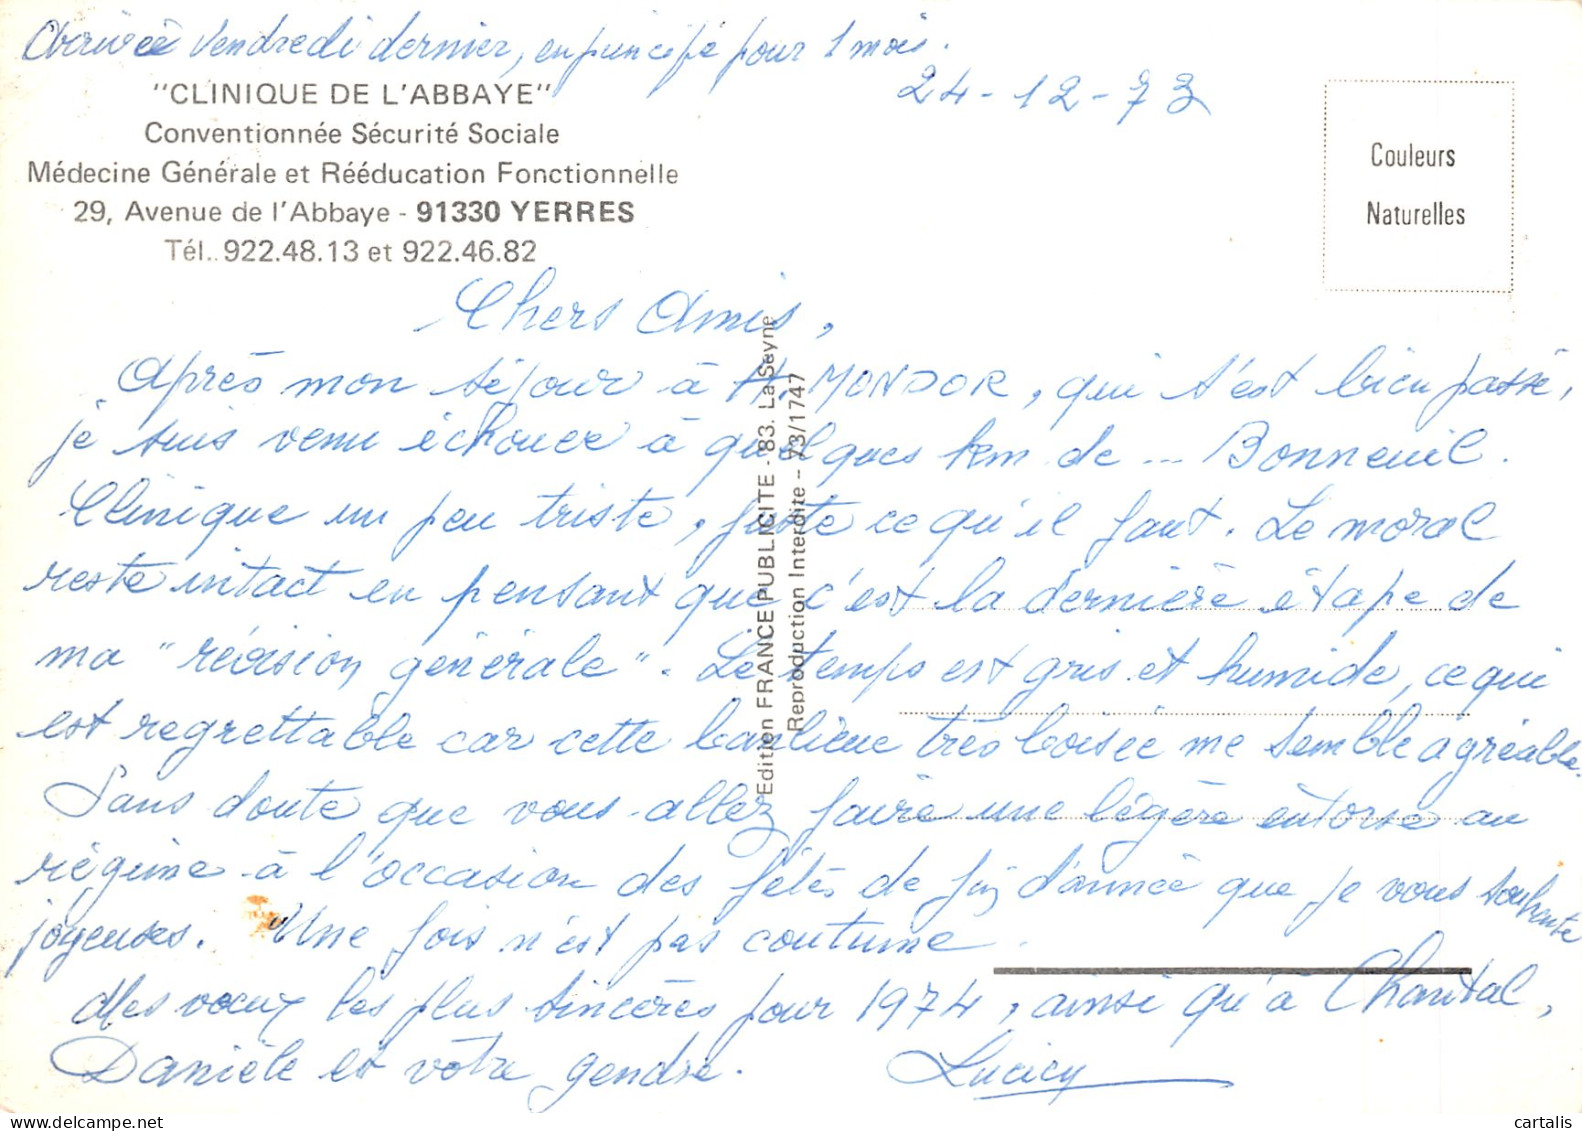 Arrivée Vendredi dernier, en principe pour 1 mois.
24-12-73
"CLINIQUE DE L'ABBAYE"
Conventionnée Sécurité Sociale
Médecine Générale et Rééducation Fonctionnelle
29, Avenue de l'Abbaye - 91330 YERRES
Tél.. 922.48.13 et 922.46.82
Couleurs
Naturelles
Chers Amis,
Après mon séjour à H. MONDOR, qui s'est bien passé,
je suis venu échouer à quelques km de ... Bonneuil.
Clinique un peu triste, juste ce qu'il faut. Le moral
reste intact en pensant que c'est la dernière étape de
ma "révision générale". Le temps est gris et humide, ce qui
est regrettable car cette banlieue très boisée me semble agréable.
Sans doute que vous allez faire une légère entorse au
régime à l'occasion des fêtes de fin d'année que je vous souhaite
joyeuses. Une fois n'est pas coutume.
Mes vœux les plus sincères pour 1974, ainsi qu'à Chantal,
Danièle et votre gendre.
Lucien
Edition FRANCE PUBLICITE - 83. La Seyne
Reproduction Interdite -- 73/1747
cartalis